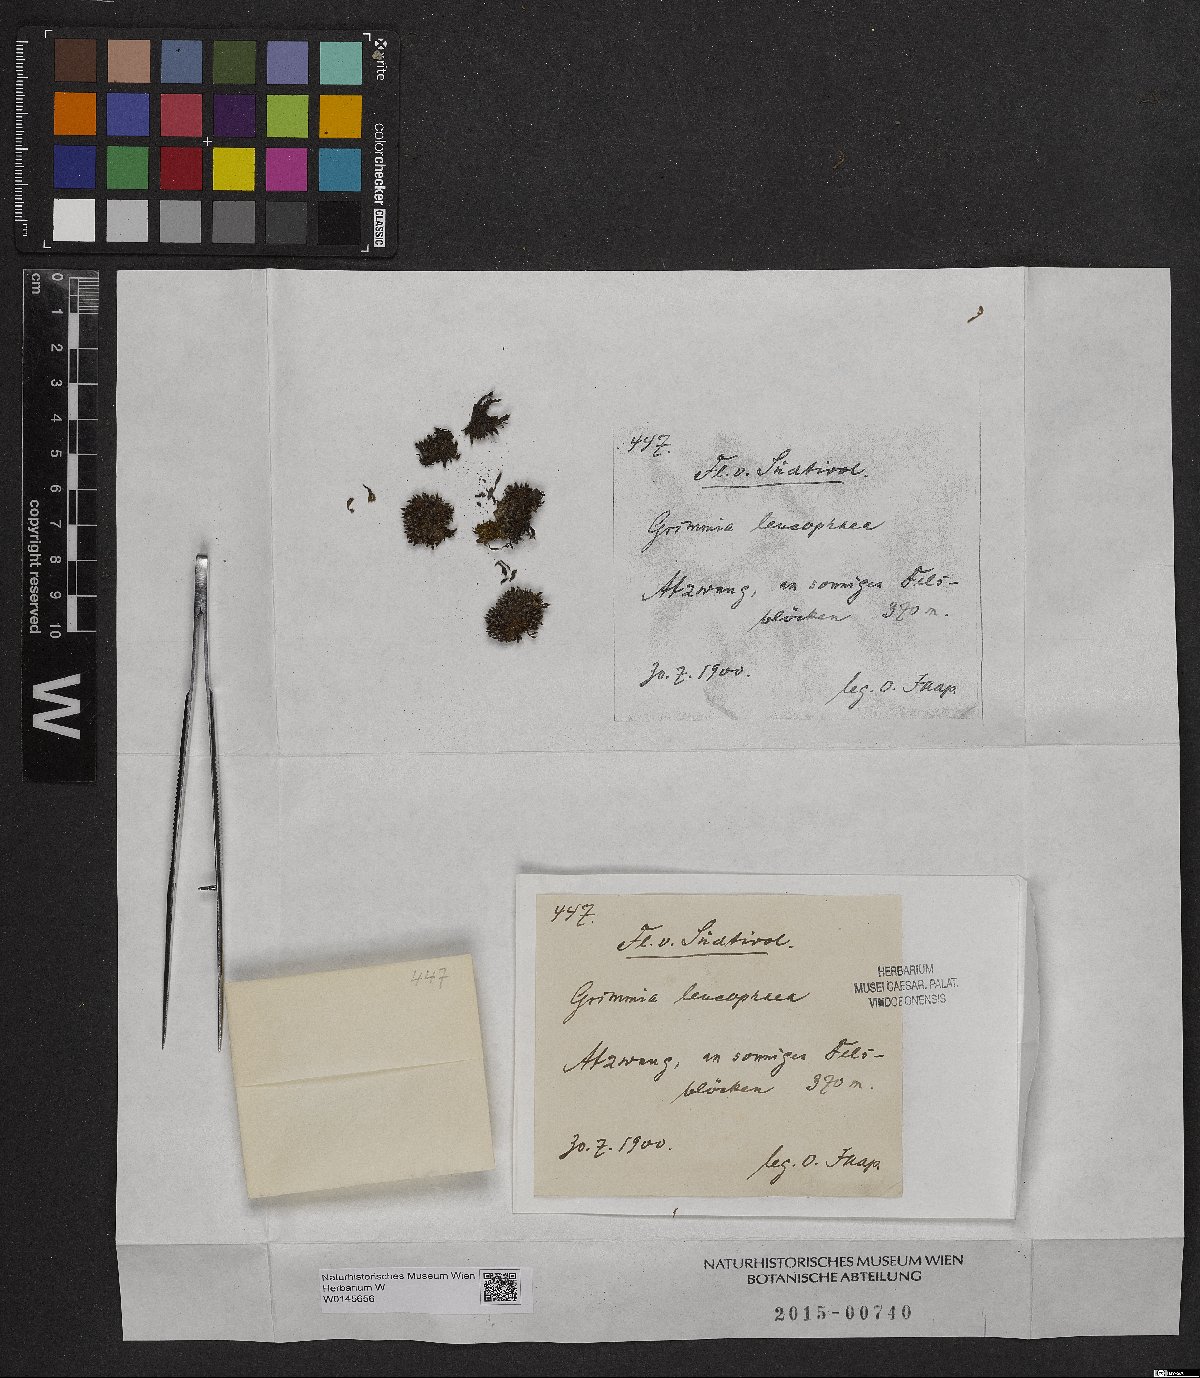 x-rite
colorchecker CLASSIC
cm
0 1 2 3 4 5 6 7 8 9 10
copyright reserved
W
447.
Fl. v. Südtirol.
Grimmia leucophaea
Atzwang, an sonnigen Fels-
blöcken 370 m.
30. 7. 1900.
leg. O. Jaap.
447
447.
Fl. v. Südtirol.
Grimmia leucophaea
Atzwang, an sonnigen Fels-
blöcken 370 m.
30. 7. 1900.
leg. O. Jaap.
HERBARIUM
MUSEI CAESAR. PALAT.
VINDOBONENSIS
Naturhistorisches Museum Wien
Herbarium W
W0145656
NATURHISTORISCHES MUSEUM WIEN
BOTANISCHE ABTEILUNG
2015-00740